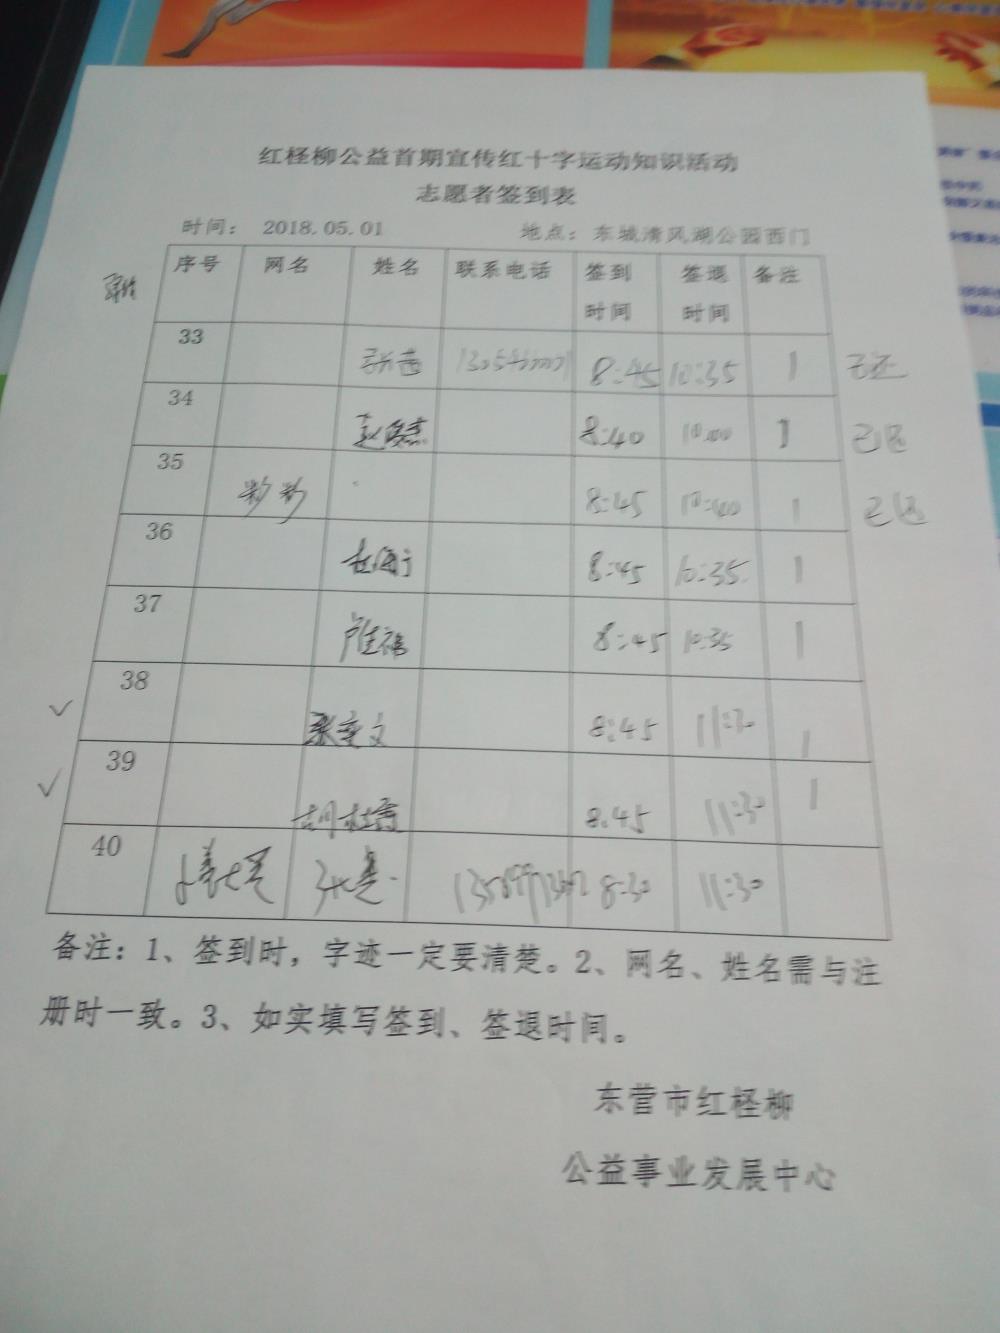 红柽柳公益首期宣传红十字运动知识活动
志愿者签到表
时间： 2018.05.01 地点：东城清风湖公园西门
序号 网名 姓名 联系电话 签到时间 签退时间 备注
33 张茜 8:45 10:35 1 已还
34 赵俊杰 8:40 10:00 1 已还
35 彩彩 8:45 10:40 1 已还
36 8:45 10:35 1
37 8:45 10:35 1
✓ 38 张雯文 8:45 11:30 1
✓ 39 8:45 11:30 1
40 8:30 11:30
备注：1、签到时，字迹一定要清楚。2、网名、姓名需与注
册时一致。3、如实填写签到、签退时间。
东营市红柽柳
公益事业发展中心